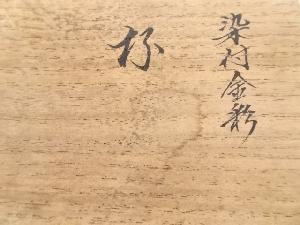 染付金彩
杯